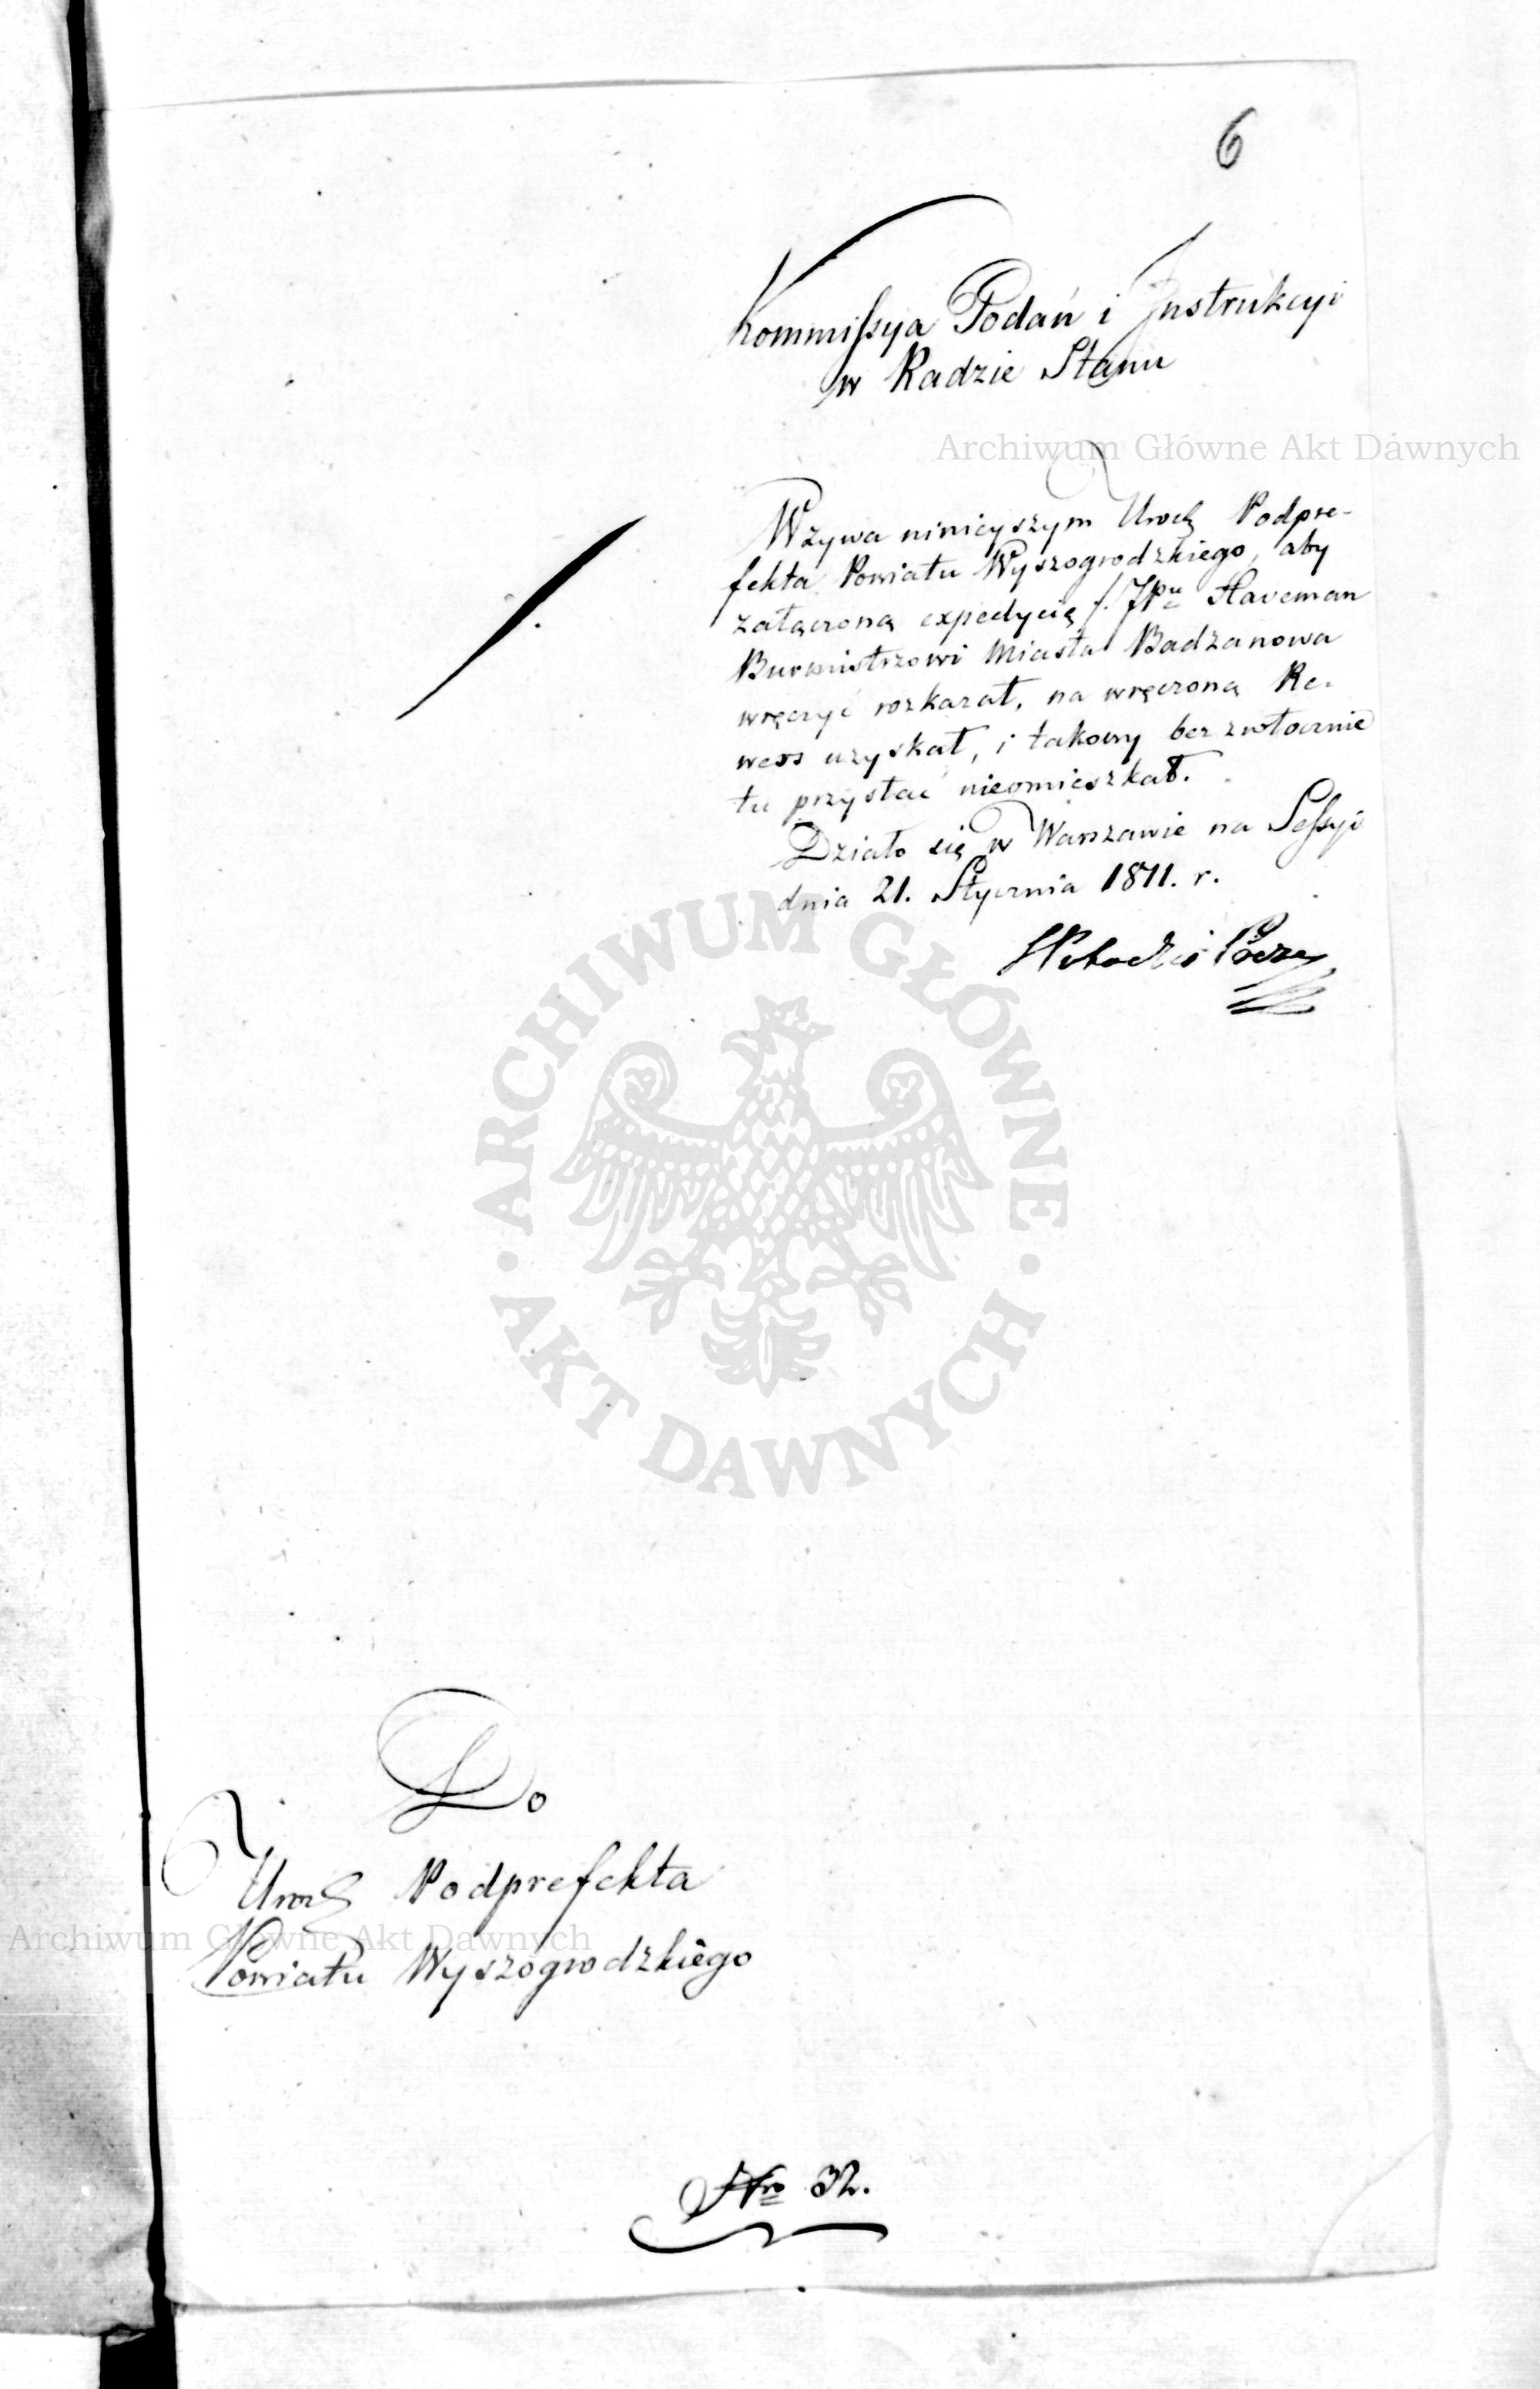 6
Kommissya Podań i Instrukcyi
w Radzie Stanu
Archiwum Główne Akt Dawnych
Wzywa ninieyszym Urodz Podpre-
fekta Powiatu Wyszogrodzkiego, aby
załączoną expedycią f. JPu Haveman
Burmistrzowi Miasta Badzanowa
wręczyć rozkazał, na wręczoną Re-
wers uzyskał, i takowy bezzwłocznie
tu przysłać nieomieszkał.
Działo się w Warszawie na Sessyi
dnia 21. Stycznia 1811. r.
ARCHIWUM GŁÓWNE
AKT DAWNYCH
Do
Urodz Podprefekta
Archiwum Główne Akt Dawnych
Powiatu Wyszogrodzkiego
Nro 32.